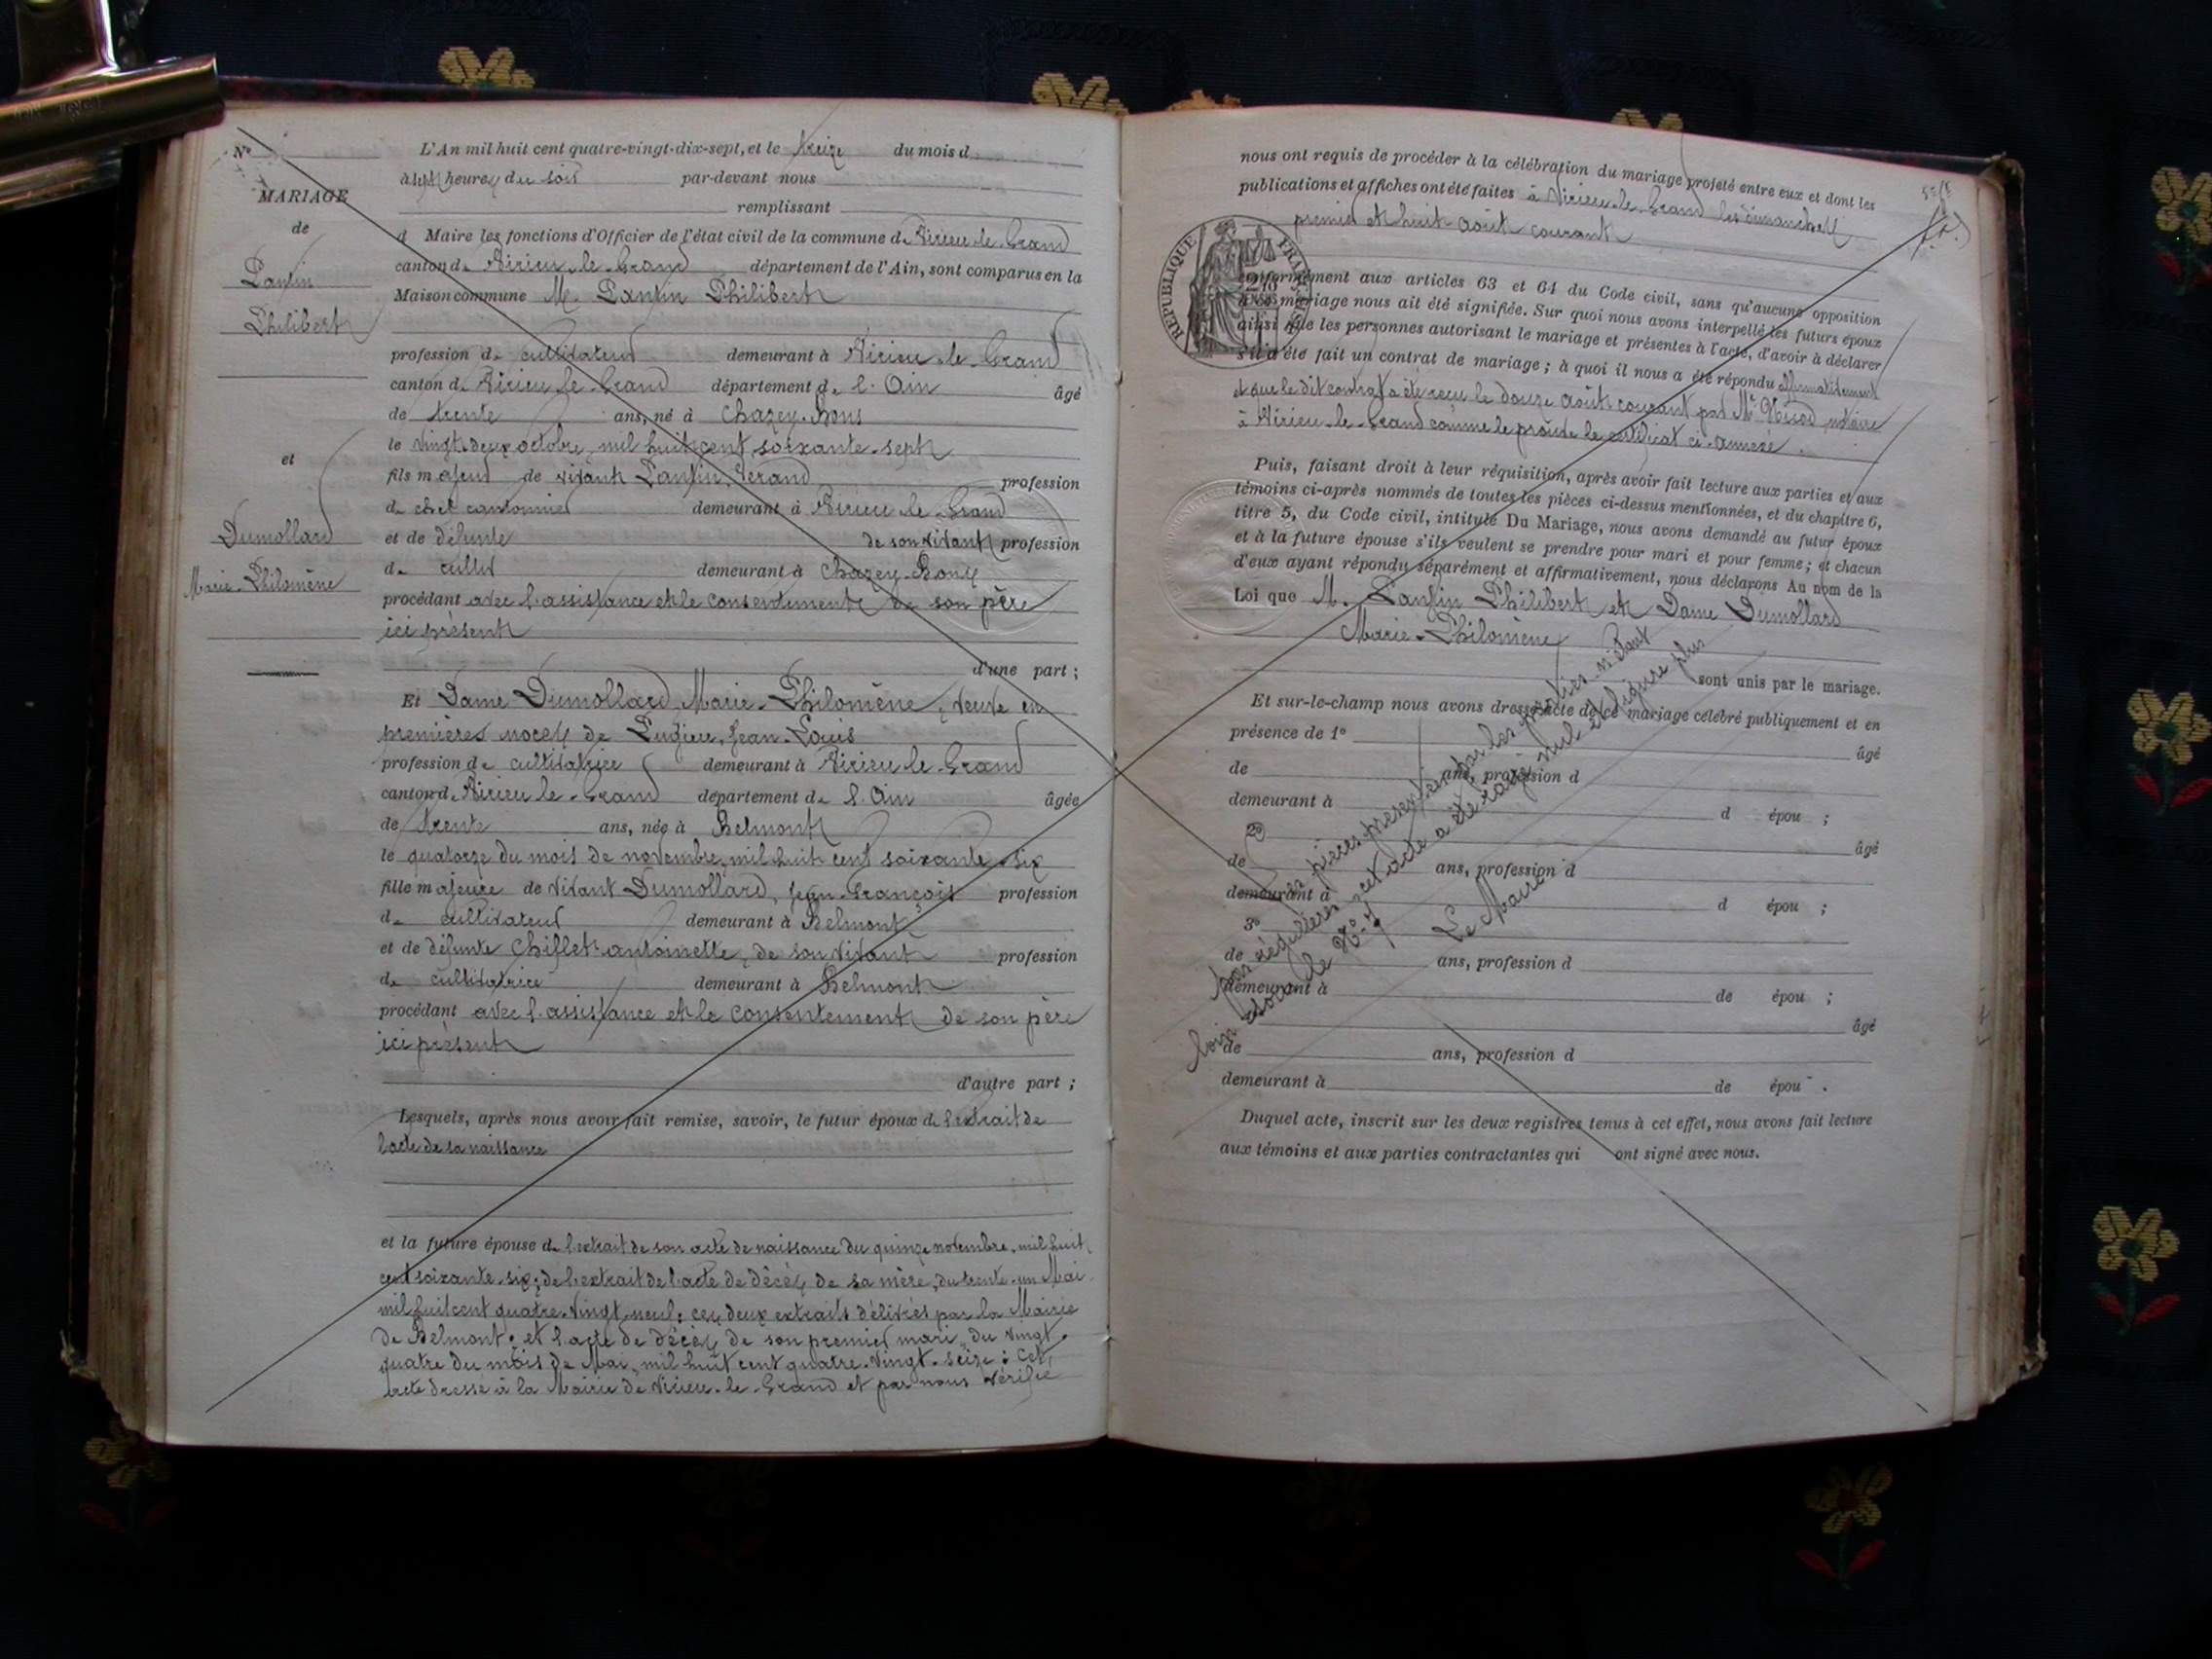 Nº
MARIAGE
de
Pantin
Philibert
et
Dumollard
Marie-Philomène
L'An mil huit cent quatre-vingt-dix-sept, et le treize du mois d
à sept heures du soir par-devant nous
remplissant
d Maire les fonctions d'Officier de l'état civil de la commune de Virieu-le-Grand
canton de Virieu-le-Grand département de l'Ain, sont comparus en la
Maison commune M. Pantin Philibert
profession de cultivateur demeurant à Virieu-le-Grand
canton de Virieu-le-Grand département de l'Ain âgé
de trente ans, né à Chazey-Bons
le vingt-deux octobre, mil huit cent soixante-sept
fils majeur de vivant Pantin, profession
de chef cantonnier demeurant à Virieu-le-Grand
et de défunte de son vivant profession
de cultiv demeurant à Chazey-Bons
procédant avec l'assistance et le consentement de son père
ici présent
d'une part ;
Et Dame Dumollard Marie-Philomène, veuve en
premières noces de Pugieu, Jean-Louis
profession de cultivatrice demeurant à Virieu-le-Grand
canton de Virieu-le-Grand département de l'Ain âgée
de trente ans, née à Belmont
le quatorze du mois de novembre, mil huit cent soixante-six
fille majeure de vivant Dumollard, Jean-François profession
de cultivateur demeurant à Belmont
et de défunte Chiflet antoinette, de son vivant profession
de cultivatrice demeurant à Belmont
procédant avec l'assistance et le consentement de son père
ici présent
d'autre part ;
Lesquels, après nous avoir fait remise, savoir, le futur époux de l'extrait de
l'acte de sa naissance
et la future épouse de l'extrait de son acte de naissance du quinze novembre, mil huit
cent soixante-six; de l'extrait de l'acte de décès de sa mère, du trente-un Mai
mil huit cent quatre-vingt-neuf; ces deux extraits délivrés par la Mairie
de Belmont; et l'acte de décès de son premier mari, du vingt-
quatre du mois de Mai, mil huit cent quatre-vingt-seize; cet
acte dressé à la Mairie de Virieu-le-Grand et par nous vérifié
nous ont requis de procéder à la célébration du mariage projeté entre eux et dont les
publications et affiches ont été faites à Virieu-le-Grand les dimanches
premier et huit août courant
RÉPUBLIQUE FRANÇAISE
conformément aux articles 63 et 64 du Code civil, sans qu'aucune opposition
à ce mariage nous ait été signifiée. Sur quoi nous avons interpellé les futurs époux
ainsi que les personnes autorisant le mariage et présentes à l'acte, d'avoir à déclarer
s'il a été fait un contrat de mariage ; à quoi il nous a été répondu affirmativement
et que le dit contrat a été reçu le douze août courant par Me notaire
à Virieu-le-Grand comme le prouve le certificat ci-annexé.
Puis, faisant droit à leur réquisition, après avoir fait lecture aux parties et aux
témoins ci-après nommés de toutes les pièces ci-dessus mentionnées, et du chapitre 6,
titre 5, du Code civil, intitulé Du Mariage, nous avons demandé au futur époux
et à la future épouse s'ils veulent se prendre pour mari et pour femme ; et chacun
d'eux ayant répondu séparément et affirmativement, nous déclarons Au nom de la
Loi que M. Pantin Philibert et Dame Dumollard
Marie-Philomène
sont unis par le mariage.
Et sur-le-champ nous avons dressé acte de ce mariage célébré publiquement et en
présence de 1º âgé
de ans, profession d
demeurant à d épou ;
2º âgé
de ans, profession d
demeurant à d épou ;
3º
de ans, profession d
demeurant à de épou ;
âgé
de ans, profession d
demeurant à de épou .
Les pièces présentées par les parties n'étant
pas régulières, cet acte a été rayé nul et figure plus
loin sous le Nº 7
Le Maire
Duquel acte, inscrit sur les deux registres tenus à cet effet, nous avons fait lecture
aux témoins et aux parties contractantes qui ont signé avec nous.